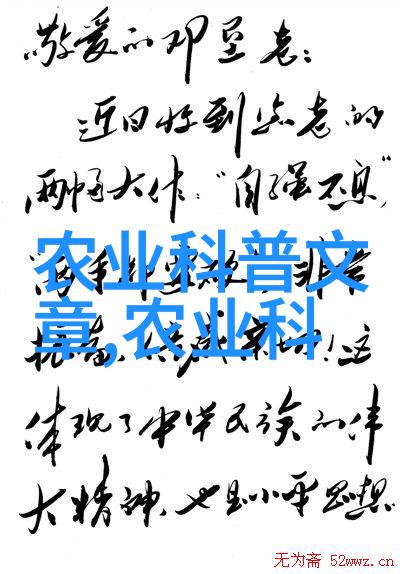 敬爱的邓垦老:
近日收到您老的
两幅大作:"自强不息"
非常
农业科普文
振奋
这
章,农业科
体现了中华民族的伟
大精神,也是小平思想
无为斋 52wwz.cn